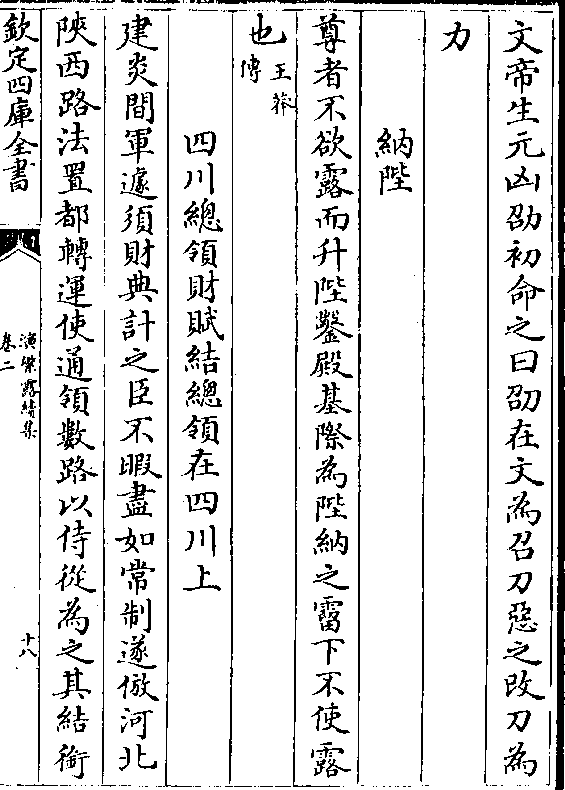 文帝生元凶劭初命之曰劭在文為召刀惡之改刀為
力
納陛
尊者不欲露而升陛鑿殿基際為陛納之霤下不使露
也王莽傳
四川總領財賦結總領在四川上
建炎間軍遽須財典計之臣不暇盡如常制遂倣河北
陜西路法置都轉運使通領數路以侍從為之其結銜
欽定四庫全書
演繁露續集
卷二
十八